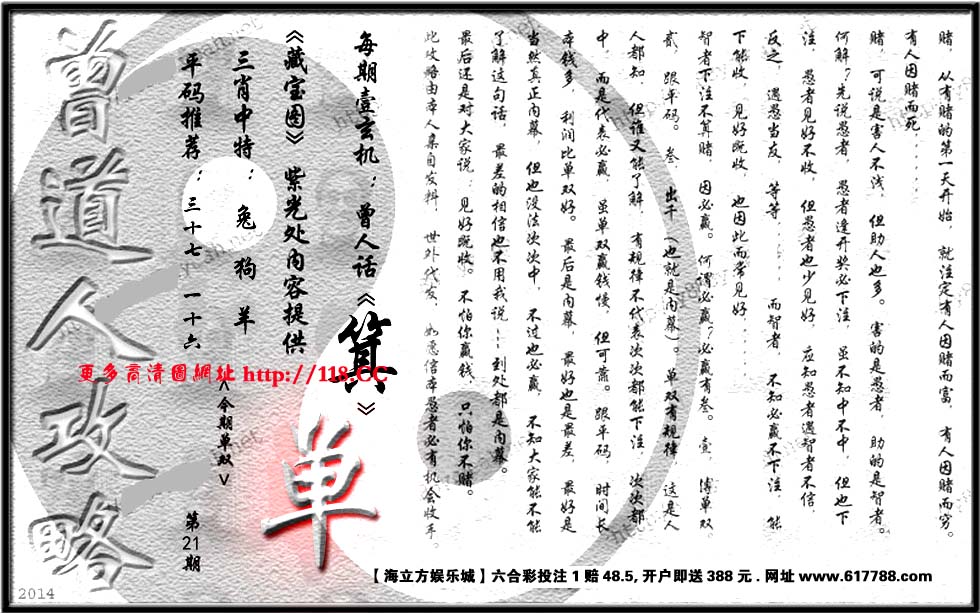 赌，从有赌的第一天开始，就注定有人因赌而富，有人因赌而穷。
有人因赌而死......
赌，可说是害人不浅，但助人也多。害的是愚者，助的是智者。
何解？先说愚者，愚者逢开奖必下注，虽不知中不中，但也下
注，愚者见好不收，但愚者也少见好，应知愚者遇智者不信，
反之，遇愚当友，等等......而智者，不知必赢不下注，能
下能收，见好既收，也因此而常见好......
智者下注不算赌，因必赢。何谓必赢？必赢有叁。壹，博单双，
贰，跟平码。叁，出千（也就是内幕）。单双有规律，这是人
人都知，但谁又能了解，有规律不代表次次都能下注，次次都
中，而是代表必赢，虽单双赢钱慢，但可靠。跟平码，时间长，
本钱多，利润比单双好。最后是内幕，最好也是最差，最好是
当然真正内幕，但也没法次次中，不过也必赢，不知大家能不能
了解这句话，最差的相信也不用我说……到处都是内幕。
最后还是对大家说：见好既收。不怕你赢钱，只怕你不赌。
此攻略由本人亲自发料，世外代友，如愿信本愚者必有机会收手。
每期壹玄机：曾人话《算》
《藏宝图》紫光处内容提供
三肖中特：兔 狗 羊
平码推荐：三十七 一十六
<今期单双>
单
第21期
曾道人攻略
更多高清圖網址 http://118.CC
【海立方娱乐城】六合彩投注1赔48.5,开户即送388元.网址www.617788.com
2014